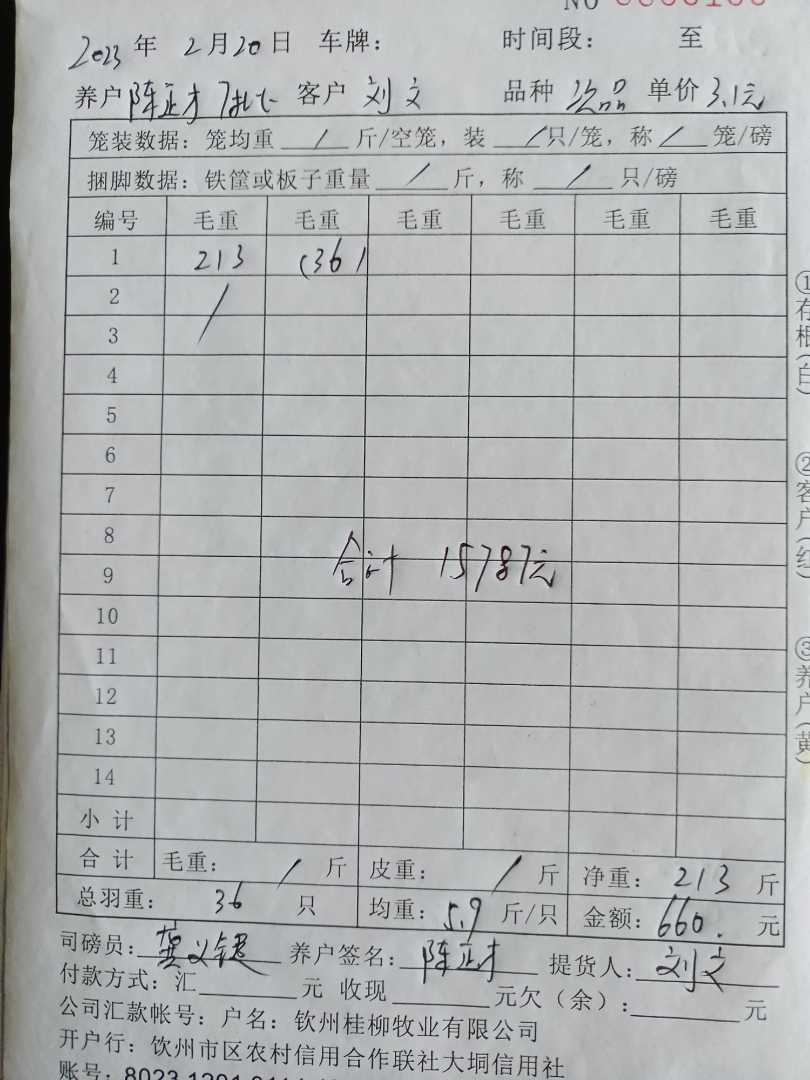 NO 0000100
2023 年 2 月 20 日 车牌： 时间段： 至
养户 陈正才 客户 刘文 品种 次品 单价 3.1元
笼装数据：笼均重 / 斤/空笼，装 / 只/笼，称 / 笼/磅
捆脚数据：铁筐或板子重量 / 斤，称 / 只/磅
编号 毛重 毛重 毛重 毛重 毛重 毛重
1 213 (36)
2 /
3
4
5
6
7
8
合计 15787元
9
10
11
12
13
14
小计
合计 毛重： / 斤 皮重： / 斤 净重：213 斤
总羽重： 36 只 均重：5.9 斤/只 金额：660. 元
司磅员： 养户签名：陈正才 提货人：刘文
付款方式：汇 元 收现 元欠（余）： 元
公司汇款帐号：户名：钦州桂柳牧业有限公司
开户行：钦州市区农村信用合作联社大垌信用社
账号：8023 1201
①存根(白)
②客户(红)
③养户(黄)